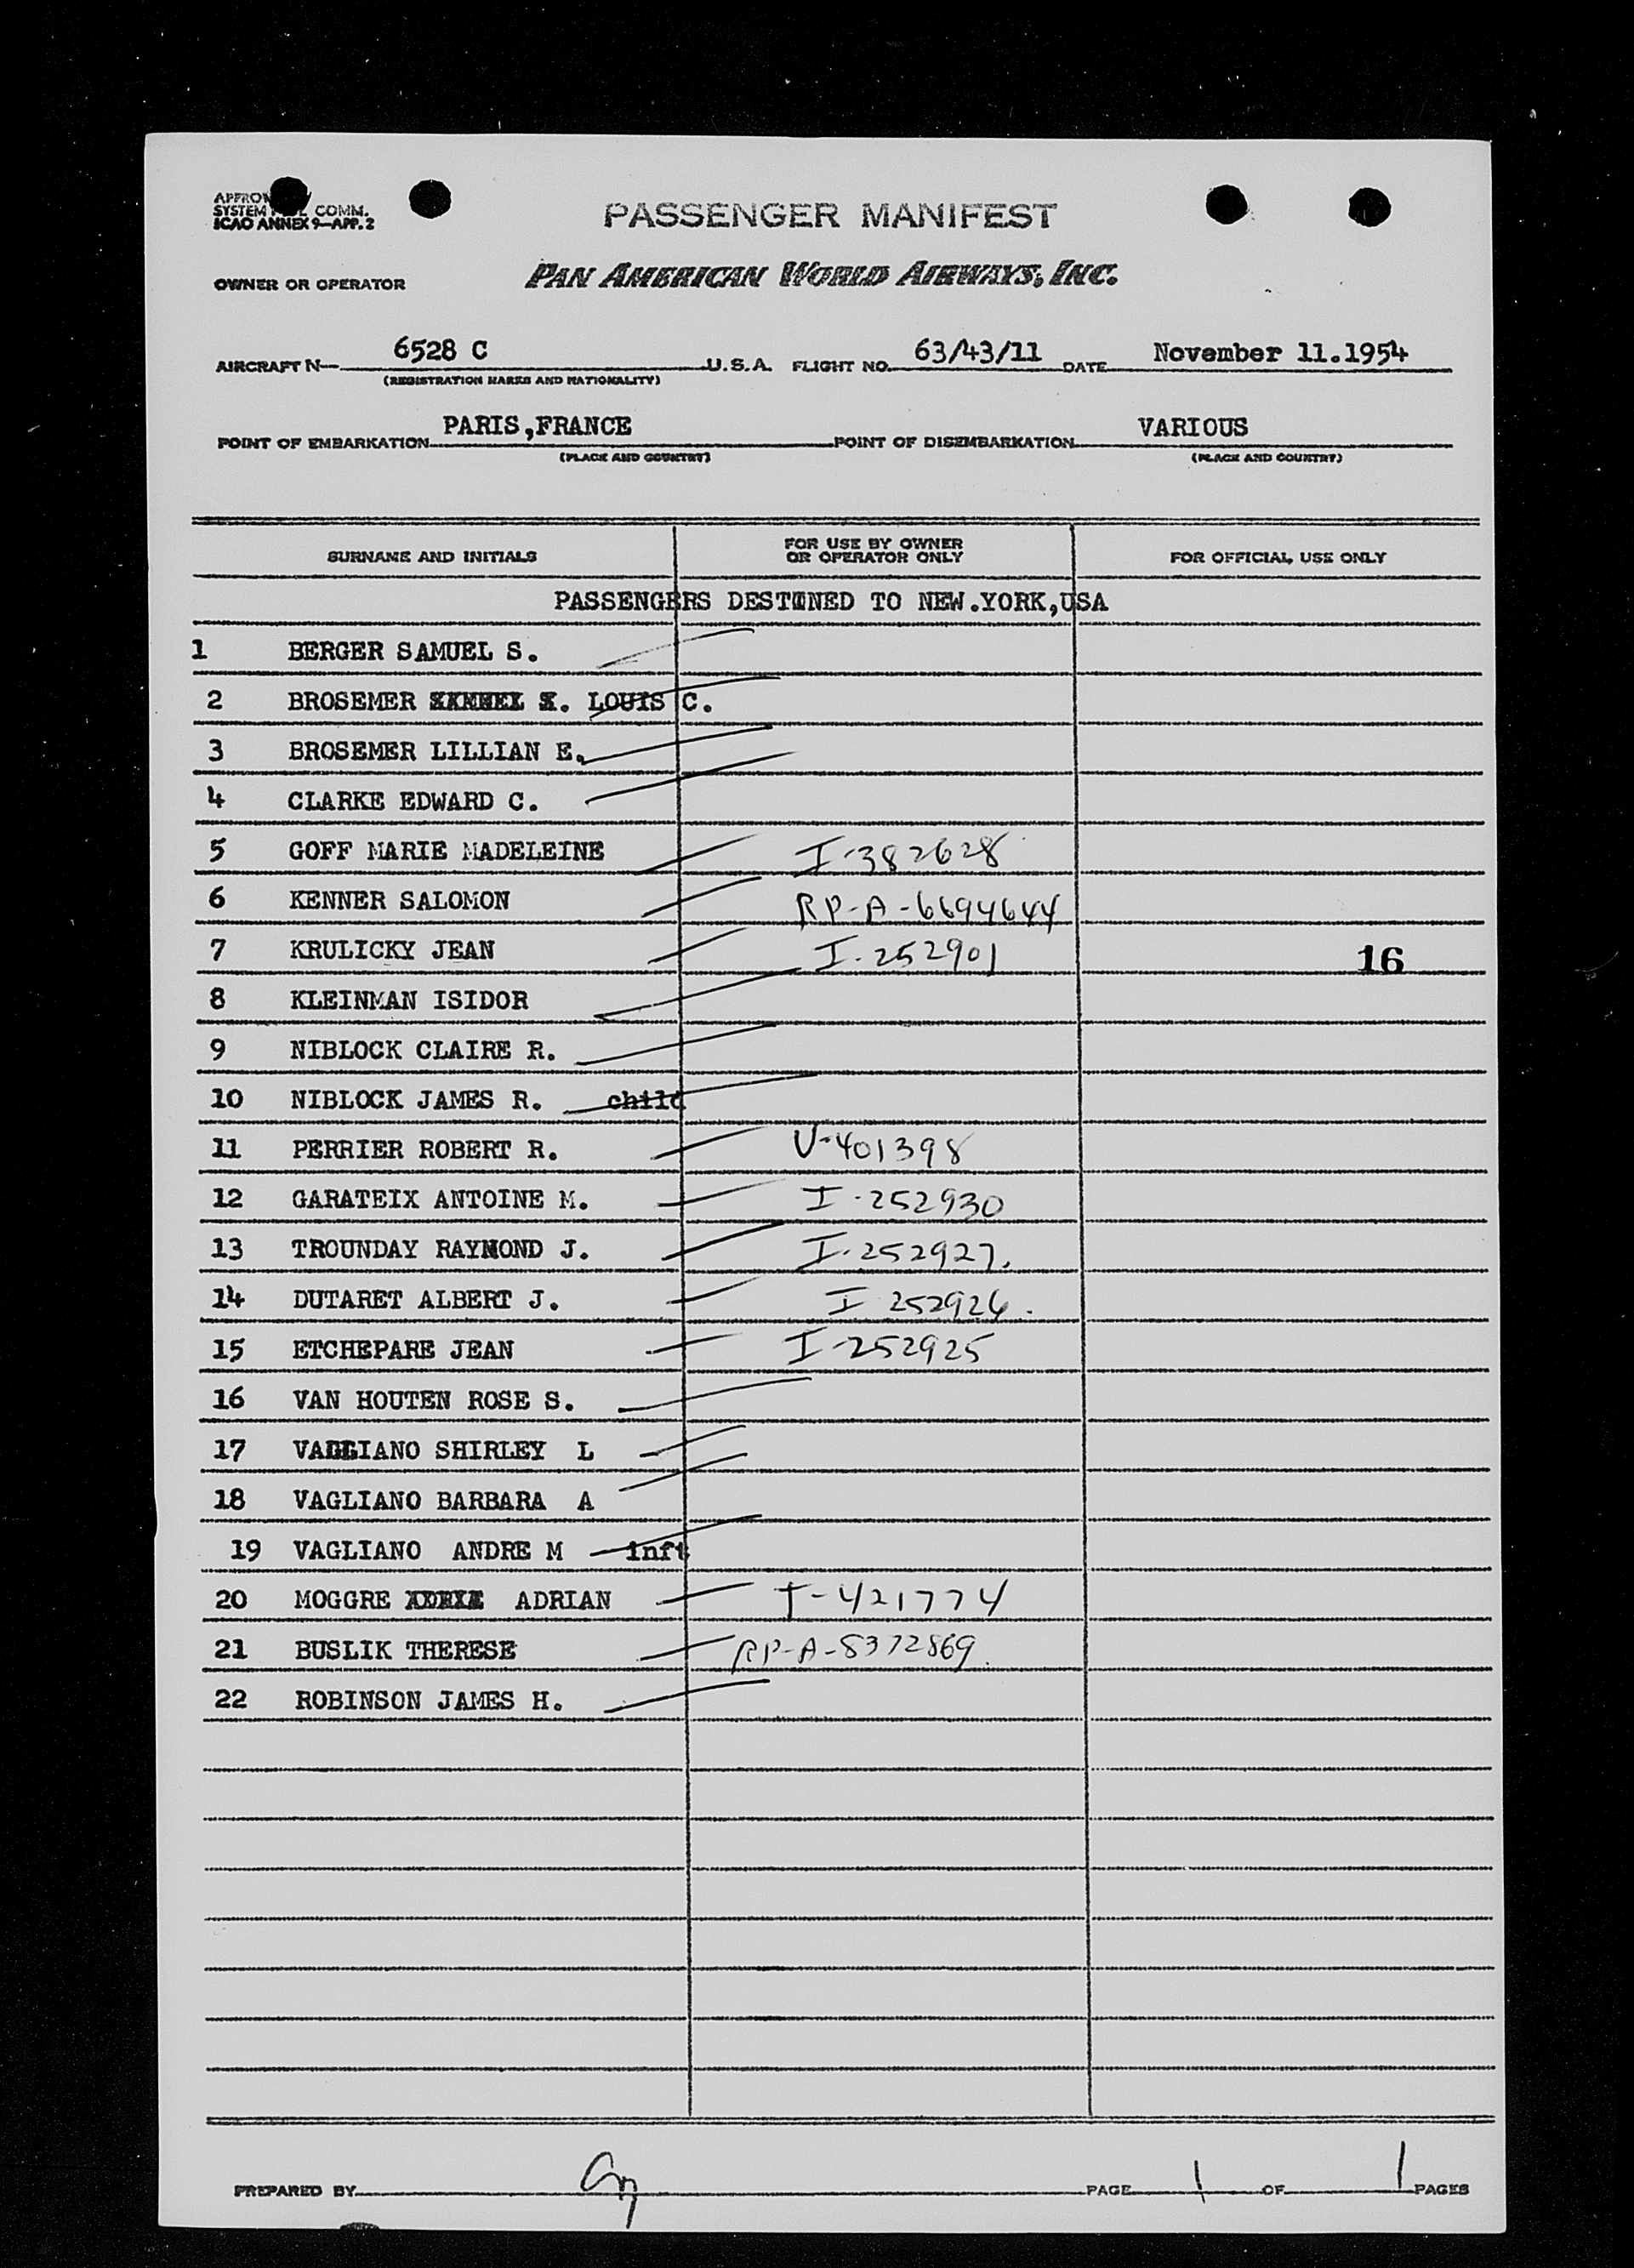 SYSTEM COMM.
ICAO ANNEX 9—APP. 2
PASSENGER MANIFEST
OWNER OR OPERATOR PAN AMERICAN WORLD AIRWAYS, INC.
AIRCRAFT N— 6528 C U.S.A. FLIGHT NO. 63/43/11 DATE November 11.1954
(REGISTRATION MARKS AND NATIONALITY)
POINT OF EMBARKATION PARIS,FRANCE POINT OF DISEMBARKATION VARIOUS
(PLACE AND COUNTRY) (PLACE AND COUNTRY)
SURNAME AND INITIALS FOR USE BY OWNER OR OPERATOR ONLY FOR OFFICIAL USE ONLY
PASSENGERS DESTINED TO NEW.YORK,USA
1 BERGER SAMUEL S.
2 BROSEMER LOUIS C.
3 BROSEMER LILLIAN E.
4 CLARKE EDWARD C.
5 GOFF MARIE MADELEINE I-382628
6 KENNER SALOMON RP-A-6694644
7 KRULICKY JEAN I-252901 16
8 KLEINMAN ISIDOR
9 NIBLOCK CLAIRE R.
10 NIBLOCK JAMES R. child
11 PERRIER ROBERT R. V-401398
12 GARATEIX ANTOINE M. I-252930
13 TROUNDAY RAYMOND J. I-252927.
14 DUTARET ALBERT J. I 252926.
15 ETCHEPARE JEAN I-252925
16 VAN HOUTEN ROSE S.
17 VAGLIANO SHIRLEY L
18 VAGLIANO BARBARA A
19 VAGLIANO ANDRE M inft
20 MOGGRE ADRIAN I-421774
21 BUSLIK THERESE RP-A-8372869.
22 ROBINSON JAMES H.
PREPARED BY PAGE 1 OF 1 PAGES